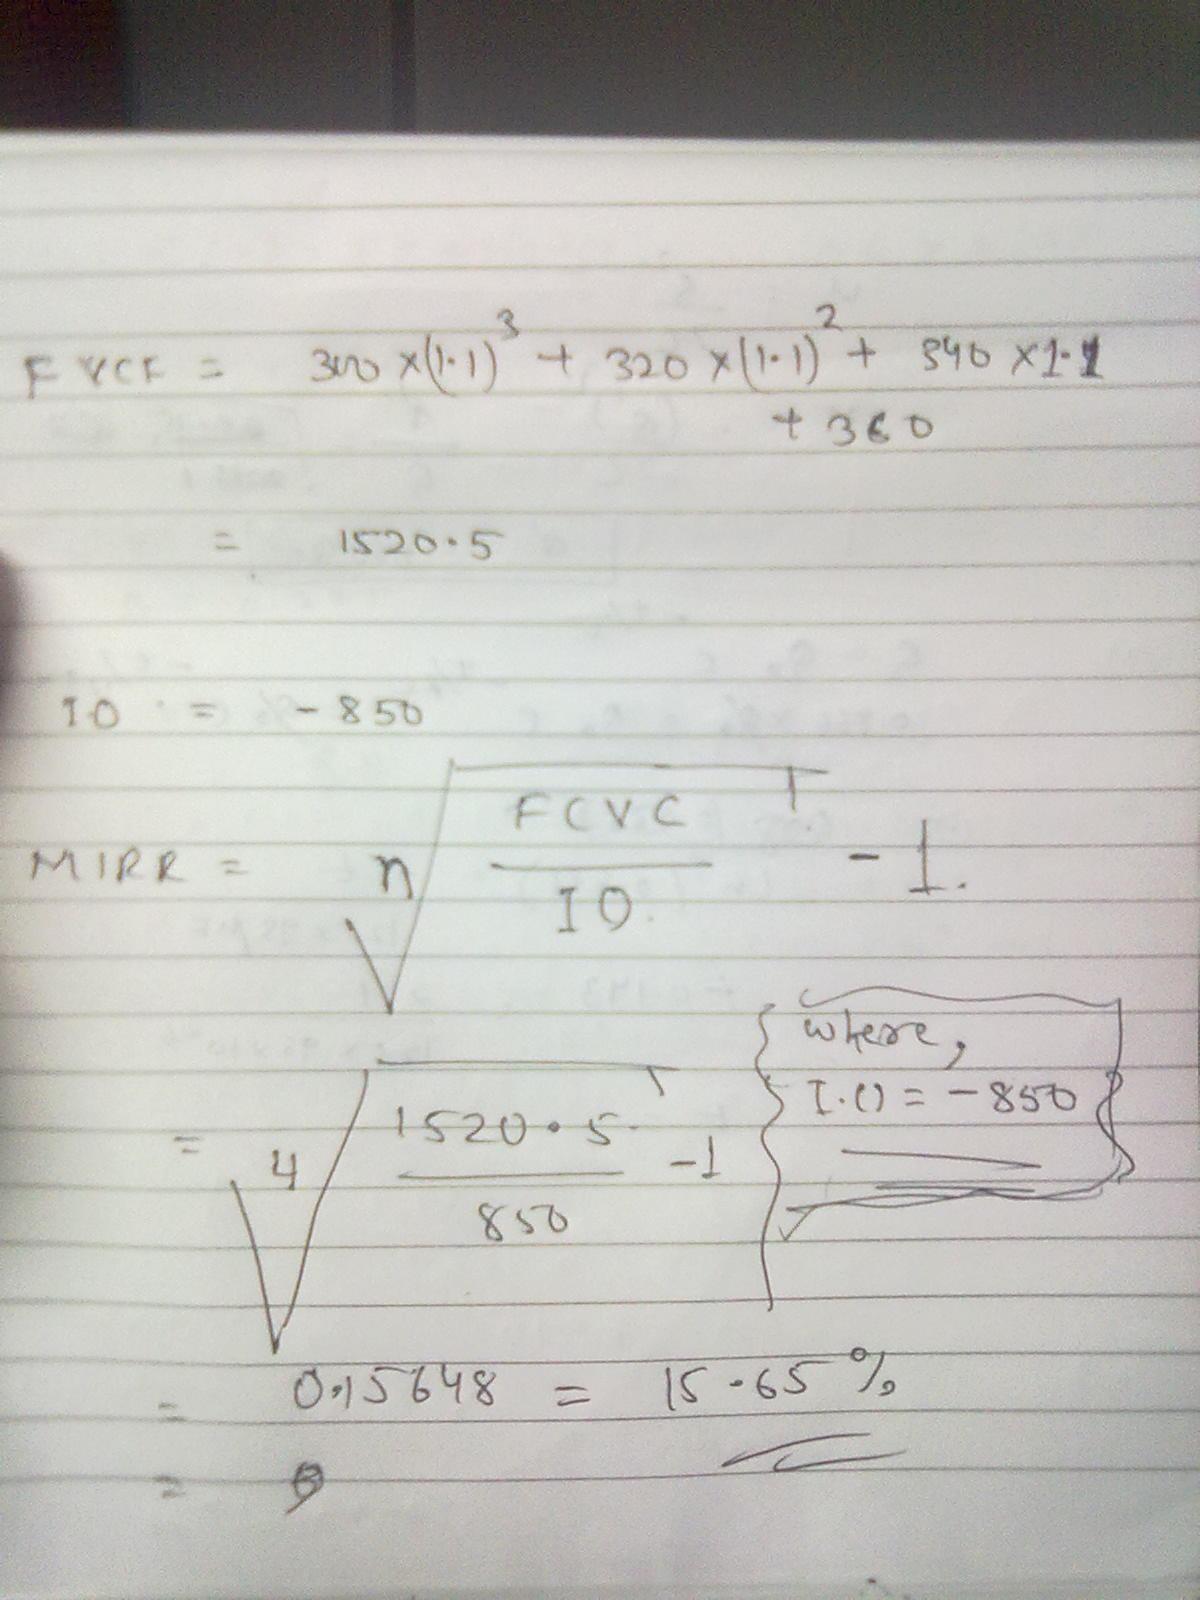 FVCF = 300 × (1.1)³ + 320 × (1.1)² + 340 × 1.1
+ 360
= 1520.5
IO = - 850
MIRR = n√ FCVC / IO. - 1.
= 4√ 1520.5 / 850 - 1
where,
I.O = - 850
= 0.15648 = 15.65 %
=